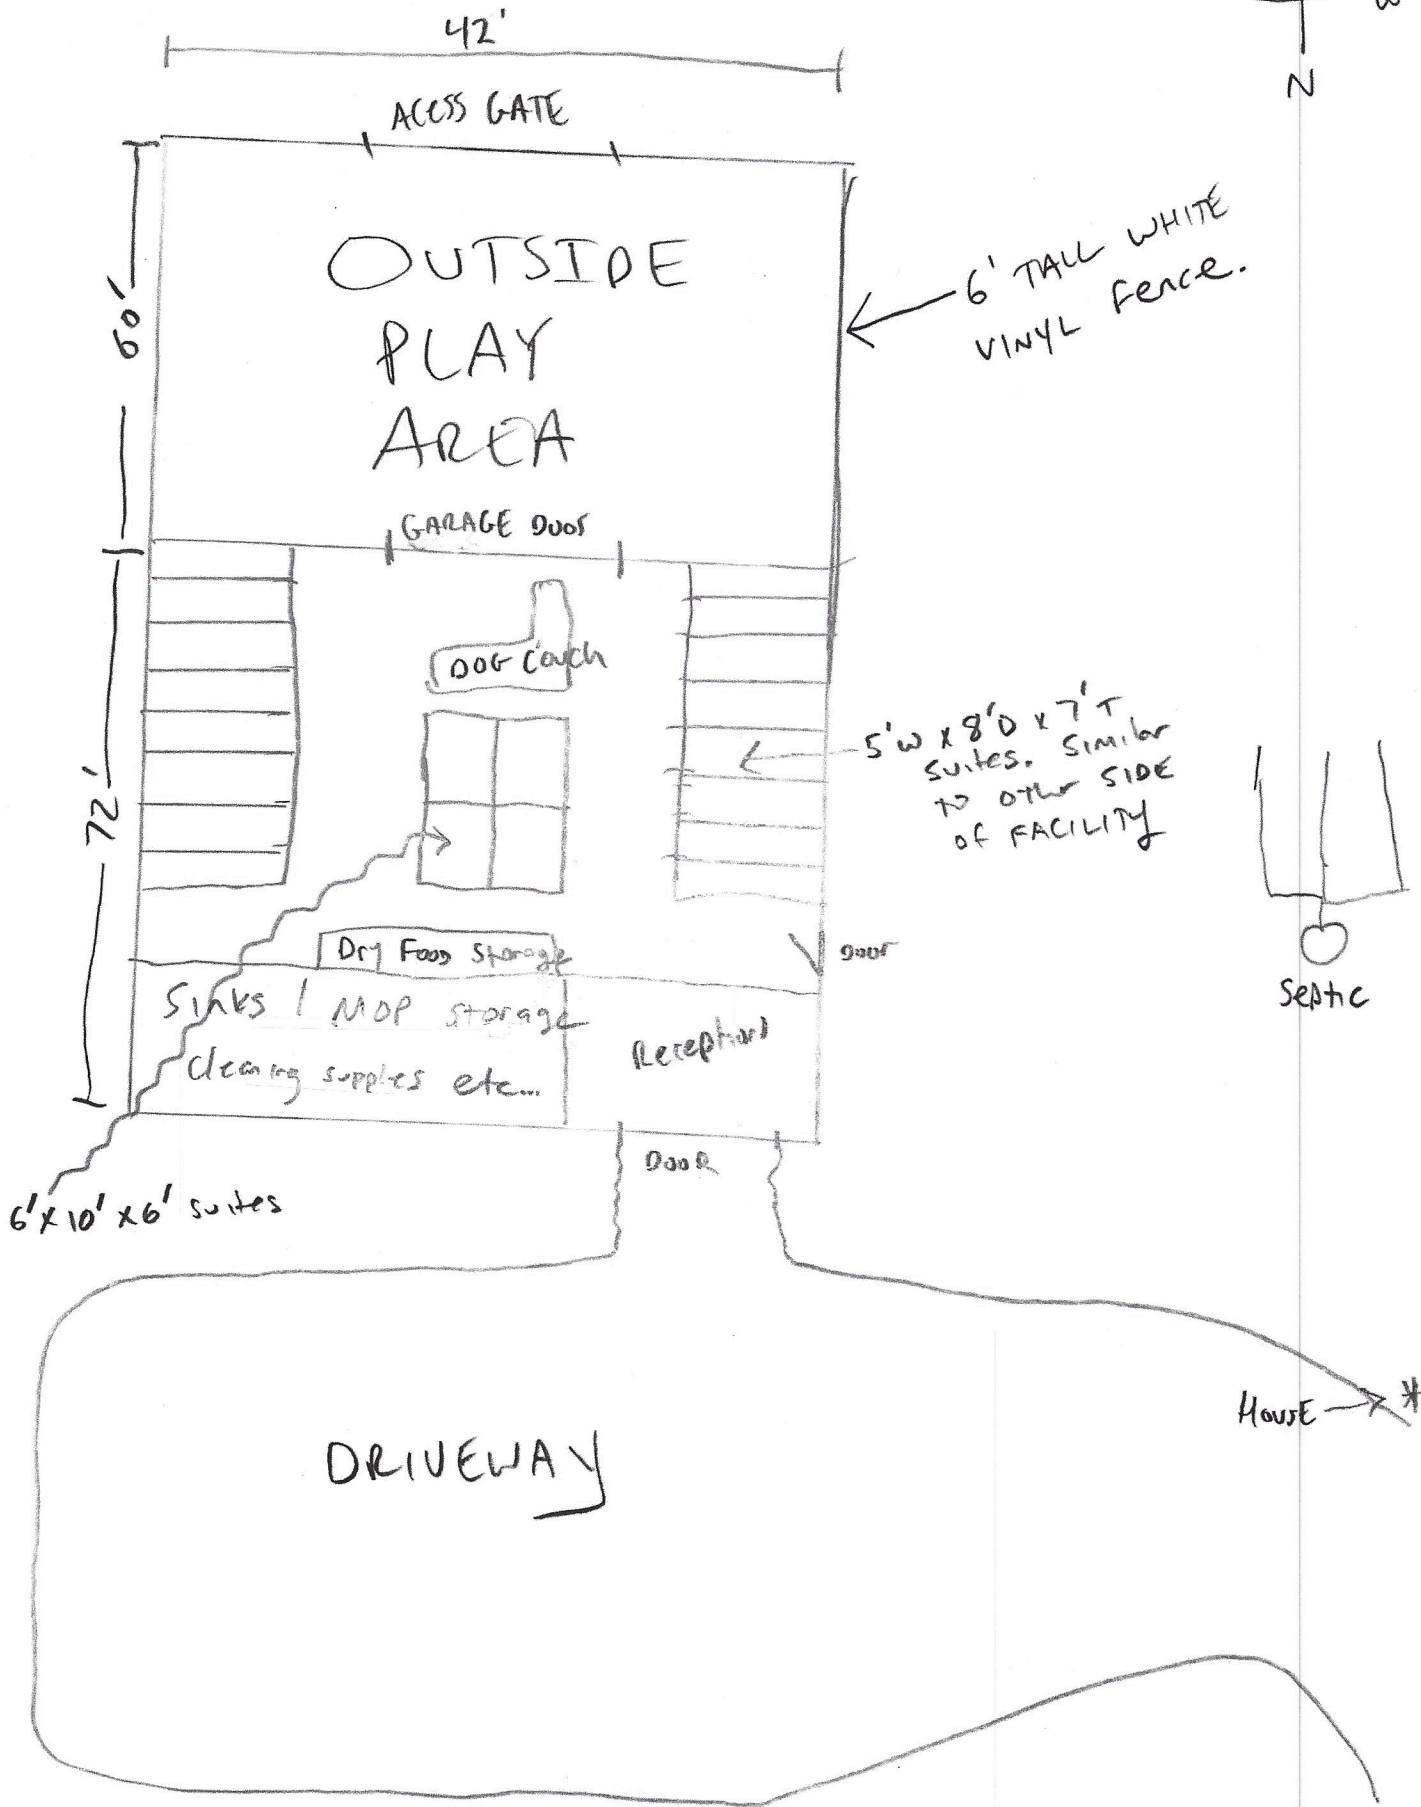 42'
W
N
ACESS GATE
60'
OUTSIDE
PLAY
AREA
6' TALL WHITE
VINYL Fence.
GARAGE DOOR
DOG Couch
72'
5'W x 8'D x 7'T
suites. Similar
to other SIDE
of FACILITY
Dry Food Storage
DOOR
Septic
Sinks / MOP storage
Cleaning supplies etc...
Reception
DOOR
6' x 10' x 6' suites
HOUSE
*
DRIVEWAY